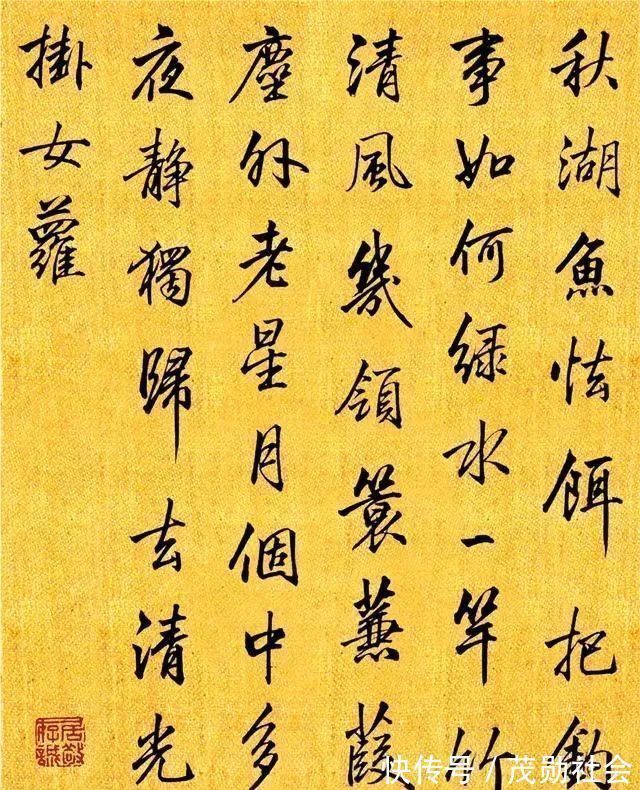 秋湖魚怯餌把釣
事如何綠水一竿竹
清風幾領蓑蒹葭
塵外老星月個中多
夜静獨歸去清光
掛女蘿
居敬存誠
快传号 / 茂勋社会